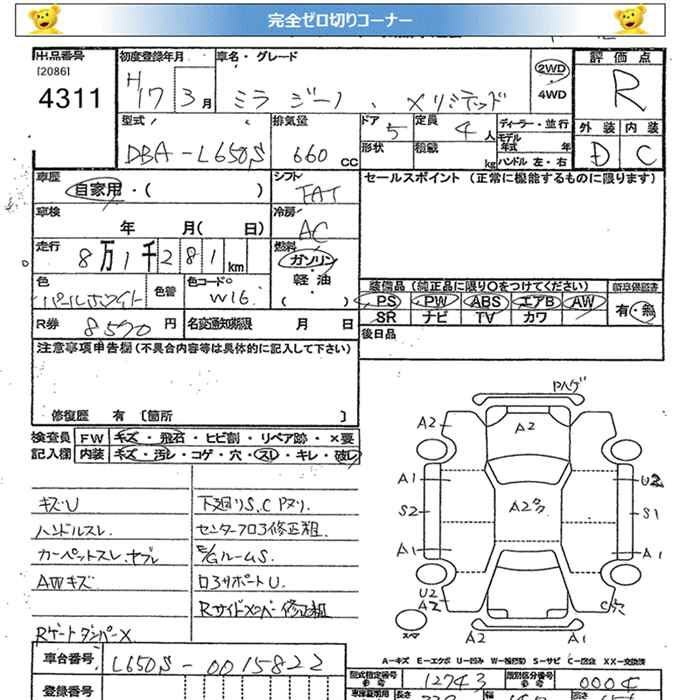 完全ゼロ切りコーナー
出品番号
[2086]
4311
初度登録年月
H
17 3月
車名・グレード
ミラ ジーノ 、 メリミテッド
2WD
4WD
評価点
R
外装 内装
D C
型式
DBA-L650S
排気量
660 CC
ドア
5
形状
定員
4人
積載
kg
ディーラー・並行
モデル年式 年
ハンドル 左・右
車歴
自家用・( )
シフト
FAT
セールスポイント(正常に機能するものに限ります)
車検
年 月( 日)
冷房
AC
走行
8万1千281km
燃料
ガソリン
軽油
( )
色
パールホワイト
色替
色コードNo
W16
装備品(純正品に限り○をつけてください)
PS PW ABS エアB AW
SR ナビ TV カワ
新車保証書
有・無
R券 8590円
名変通知期限 月 日
後日品
注意事項申告欄(不具合内容等は具体的に記入して下さい)
修復歴 有 [箇所 ]
検査員 FW キズ・飛石・ヒビ割・リペア跡・×要
記入欄 内装 キズ・汚レ・コゲ・穴・スレ・キレ・破レ
キズU
ハンドルスレ
カーペットスレ、ヤブレ
AWキズ
Rゲートダンパー×
下廻りS、Cヌリ.
センターフロア修正粗.
E/GルームS.
ロアサポートU.
Rサイドメンバー修正粗
ドロハゲ
A2
A2
A1
U2
S2
A2
S1
A1
A1
U2
A2
C穴
スペア
A2
A1
A-キズ E-エクボ U-凹み W-補修跡 S-サビ C-腐食 XX-交換済
車台番号 L650S-0015822
型式指定番号 12743
類別区分番号 0004
登録番号
長さ
幅
高さ